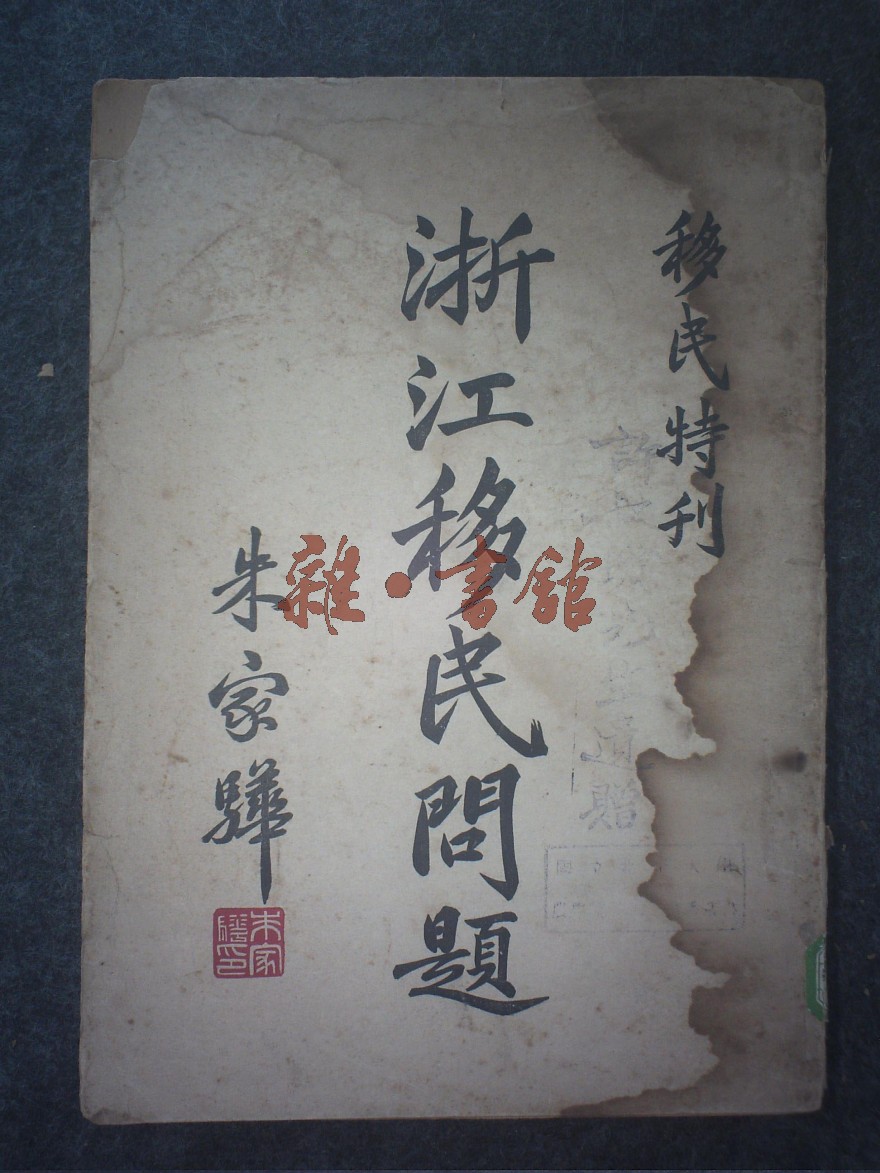 移民特刊
浙江移民問題
朱家驊
朱家驊印
雜·書館
贈